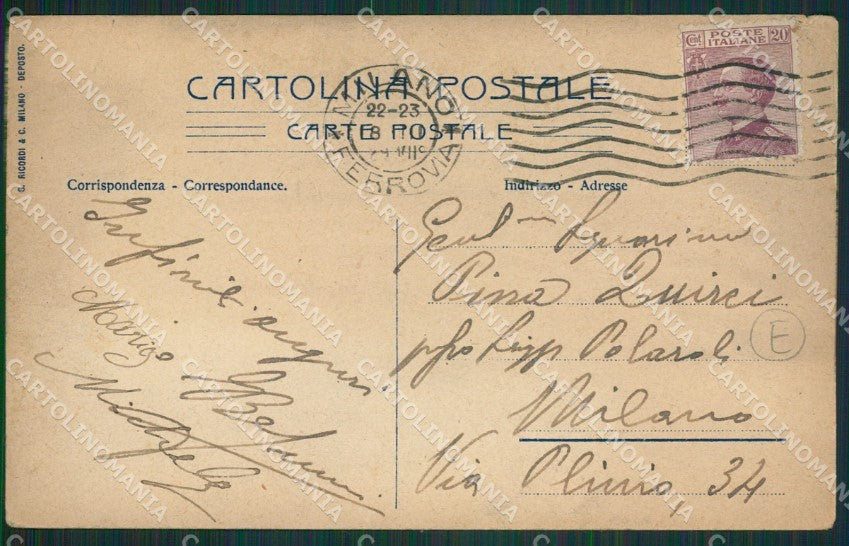 CARTOLINA POSTALE
CARTE POSTALE
G. RICORDI & C. MILANO - DEPOSTO.
Cent. POSTE ITALIANE 20
MILANO
22-23
8
FERROVIA
Corrispondenza - Correspondance.
Indirizzo - Adresse
Infiniti auguri
Mario
Gent Signorina
Pina Quirci
Polaroli
Milano
Via Plinio, 34
E
CARTOLINOMANIA